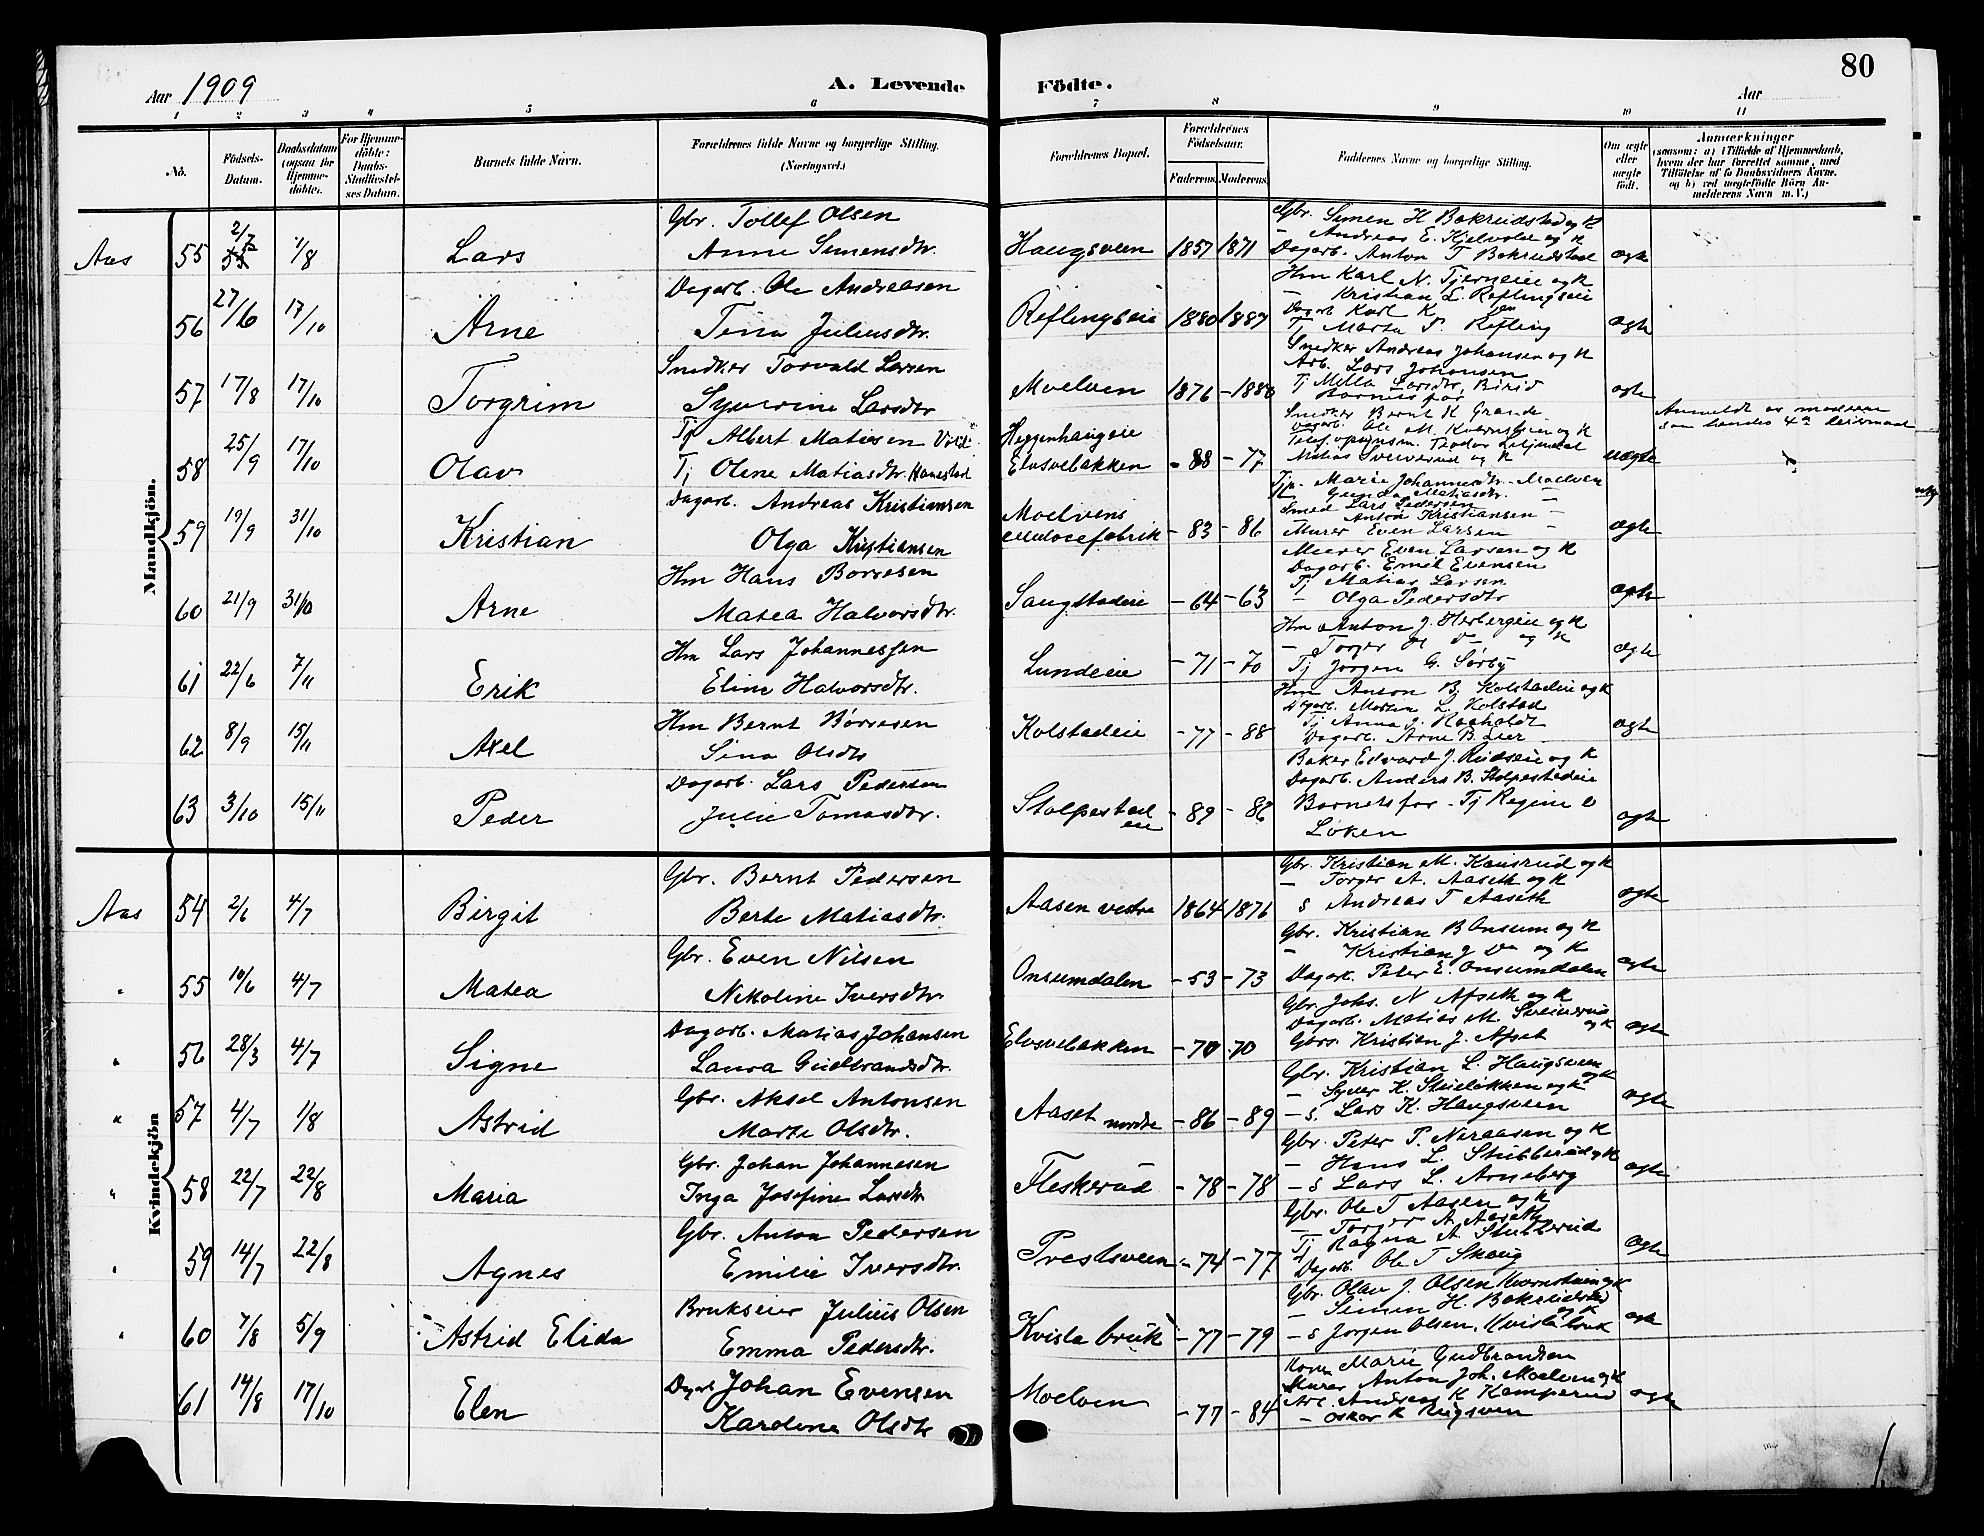 80
Aar 1909 A. Levende Födte. Aar
1 2 3 4 5 6 7 8 9 10 11
No.
Födsels-Datum.
Daabsdatum (ogsaa for Hjemmedöbte).
For Hjemmedöbte: Daabs-Stadfæstelses Datum.
Barnets fulde Navn.
Forældrenes fulde Navne og borgerlige Stilling. (Næringsvei.)
Forældrenes Bopæl.
Forældrenes Födselsaar.
Faderens. Moderens.
Faddernes Navne og borgerlige Stilling.
Om ægte eller uægte født.
Anmærkninger
(saasom: a) i Tilfælde af Hjemmedaab, hvem der har forrettet samme, med Tilföielse af to Daabsvidners Navne, og b) ved uægtefödte Börn Anmelderens Navn m. V.)
Mandkjön.
Aas 55 2/7 1/8 Lars
Gbr. Tollef Olsen
Anne Simensdtr.
Haugsveen 1857 1871
Gbr. Simen H Bakrudstad og K
– Andreas E. Kjelvold og K
Dagarb. Anton T Bakrudstad
ægte
56 27/6 17/10 Arne
Dagarb. Ole Andreasen
Tina Juliusdtr.
Reflingseie 1880 1887
Hm Karl N. Tjerneie og K
– Kristian L. Reflingseie
Dagarb Karl K
Tj Marta P. Refling
ægte
57 17/8 17/10 Torgrim
Snedker Torvald Larsen
Syverine Larsdtr
Moelven 1876 – 1880
Snedker Andreas Johansen og K
Arb. Lars Johansen
Tj Milla Larsdtr, Birid
Barnets far
ægte
58 25/9 17/10 Olav
Tj Albert Matisen
Tj Olene Matiasdtr.
Heggenhaugeie
Elvsvebakken - 88 – 77
Snedker Bernt K Grande
Dagarb. Ole M. Kvernsteen og K
Matias Sveverud og K
uægte
Anmeldt av moderen
som hendes 4de leiermaal
59 19/9 31/10 Kristian
Dagarb. Andreas Kristiansen
Olga Kristiansen
Moelvens
– 83 – 86
Tjp. Marie Johannesdtr. Moelven
Gunda Matiasdtr. –
Smed Lars Pedersen
– Anton Kristiansen –
Murer Even Larsen
ægte
60 21/9 31/10 Arne
Hm Hans Børresen
Matea Halvorsdtr.
Saugstadeie – 64 – 63
Murer Even Larsen og K
Dagarb. Emil Evensen
Tj Matias Larsen
– Olga Pedersdtr
ægte
61 22/6 7/11 Erik
Hm Lars Johannessen
Eline Halvorsdtr.
Lundeie – 71 – 70
Hm Anton J. Herbergeie og K
– Torger og K
Tj Jørgen G. Sørby
ægte
62 8/9 15/11 Axel
Hm Bernt Børresen
Sina Olsdtr
Kolstadeie – 77 – 88
Hm Anton B. Kolstadeie og K
Dagarb. Morten L. Kolstad
Tj Anna J. Racholdt
Dagarb. Arne B. Lier
ægte
63 3/10 15/11 Peder
Dagarb. Lars Pedersen
Julie Tomasdtr.
Stolpestad
eie – 89 – 86
Baker Edvard J. Rudseie og K
Dagarb. Anders B. Stolpestadeie
Barnets far – Tj Regine O
Løken
ægte
Kvindekjön
Aas 54 2/6 4/7 Birgit
Gbr. Bernt Pedersen
Berte Matiasdtr.
Aasen vestre 1864 1876
Gbr. Kristian M. Kausrud og K
– Torger A. Aaseth og K
s Andreas T Aaseth
ægte
" 55 10/6 4/7 Matea
Gbr. Even Nilsen
Nikoline Iversdtr.
Onsumdalen – 53 – 73
Gbr. Kristian B Onsum og K
– Kristian J. Do og K
Dagark. Peter E. Onsumdalen
ægte
" 56 28/3 4/7 Signe
Dagarb. Matias Johansen
Laura Gudbrandsdtr.
Elvsvebakken – 70 – 70
Gbr. Johs. N Afseth og K
Dagarb. Matias M. Sveinerud og K
Gbrs. Kristian J. Afset
ægte
" 57 4/7 1/8 Astrid
Gbr. Aksel Antonsen
Marte Olsdtr.
Aaset nordre – 86 – 89
Gbr. Kristian L. Haugsveen og K
– Syver K. Studløkken og K
– s Lars K. Haugsveen
ægte
" 58 22/7 22/8 Maria
Gbr. Johan Johannesen
Inga Josefine Larsdtr
Fleskerud – 78 – 78
Gbr. Peter P. Neraasen og K
– Hans L. Stubberud og K
– s Lars L. Arneberg
ægte
" 59 14/7 22/8 Agnes
Gbr. Anton Pedersen
Emilie Iversdtr.
Prestsveen – 74 – 77
Gbr. Ole T Aasen og K
– Torger A Aaseth
Tj Ragna A Stubberud
Dagarb. Ole T Skaug
ægte
" 60 7/8 5/9 Astrid Elida
Brukseier Julius Olsen
Emma Pedersdtr.
Kvisla bruk – 77 – 79
Gbr. Olav J. Olsen Kvernsteen og K
– Simen H. Bakrudstad og K
– s Jørgen Olsen, Kvisla bruk
ægte
61 14/8 17/10 Elen
Dagarb Johan Evensen
Karoline Olsdtr
Moelven – 77 – 84
Kone Marie Gudbrandsen
Murer Anton Joh. Moelven og K
Arb. Andreas K Kamperud
– Oskar K Rugsveen
ægte